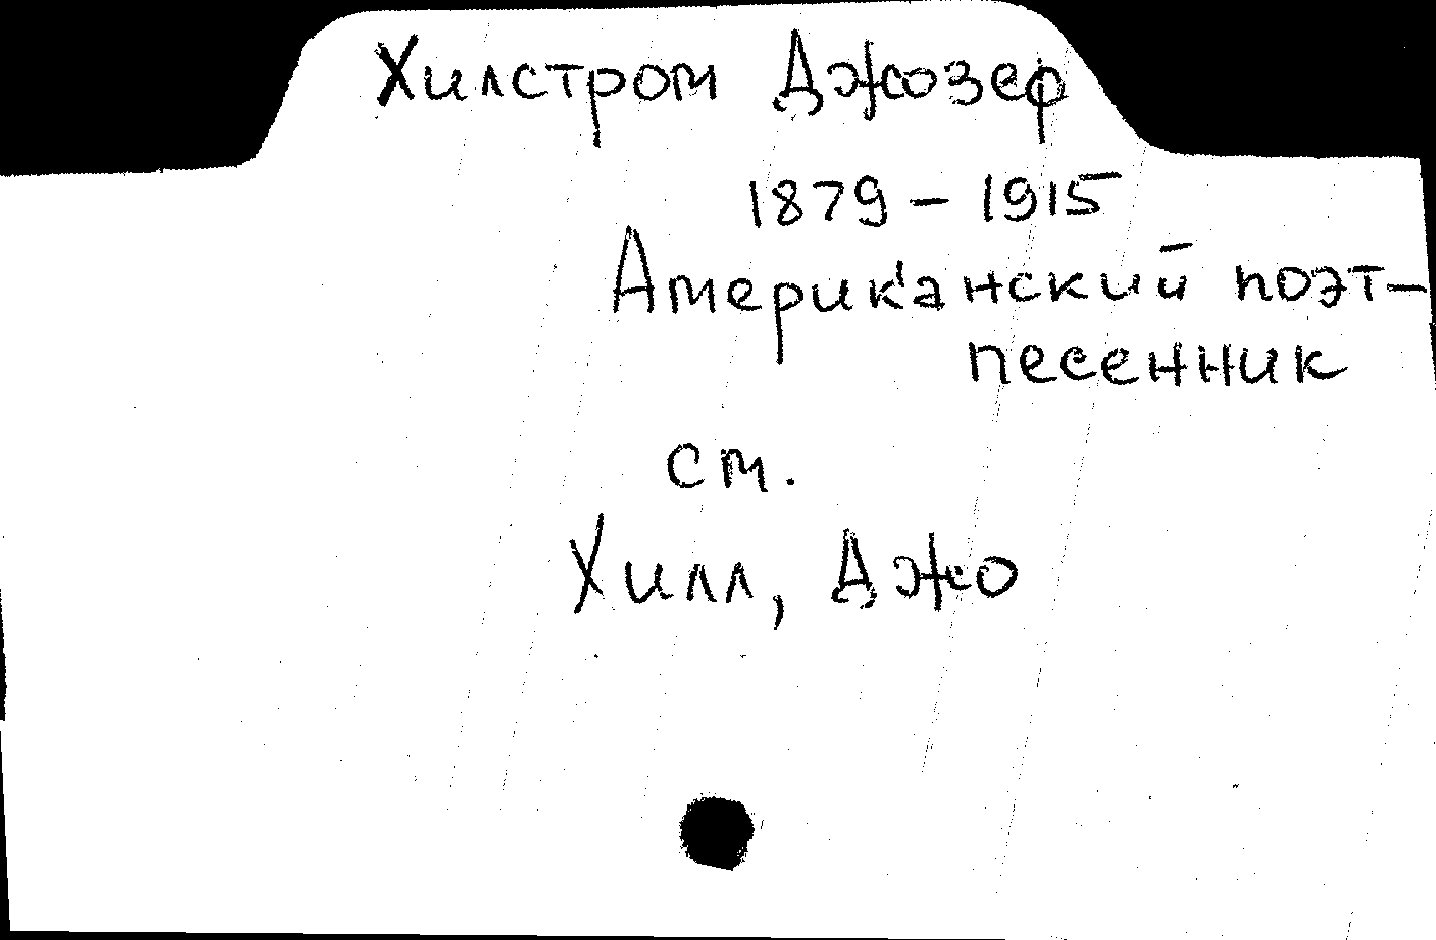 Хилстром Джозеф
1879 - 1915
Американский поэт-
песенник
см.
Хилл, Джо